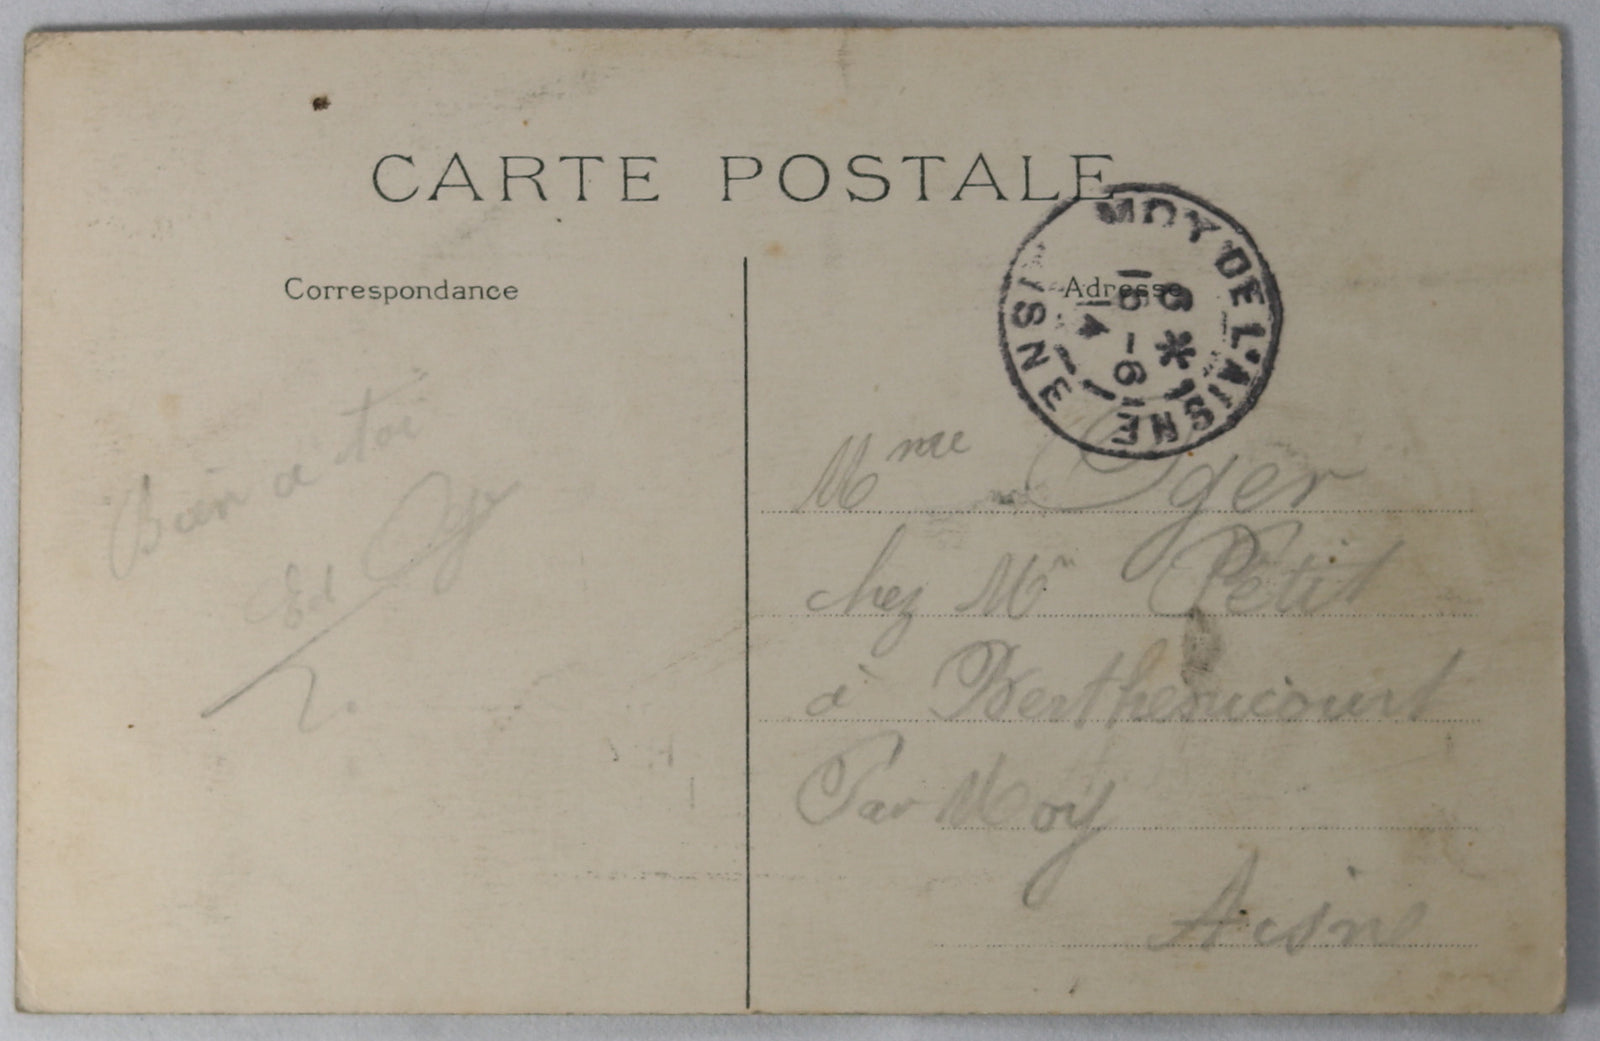 CARTE POSTALE
Correspondance
Adresse
MOY DE L'AISNE
AISNE
6 *
15 - 6
14
Bien à toi
Ed Oger
Mme Oger
chez Mr Petit
à Berthenicourt
Par Moÿ
Aisne